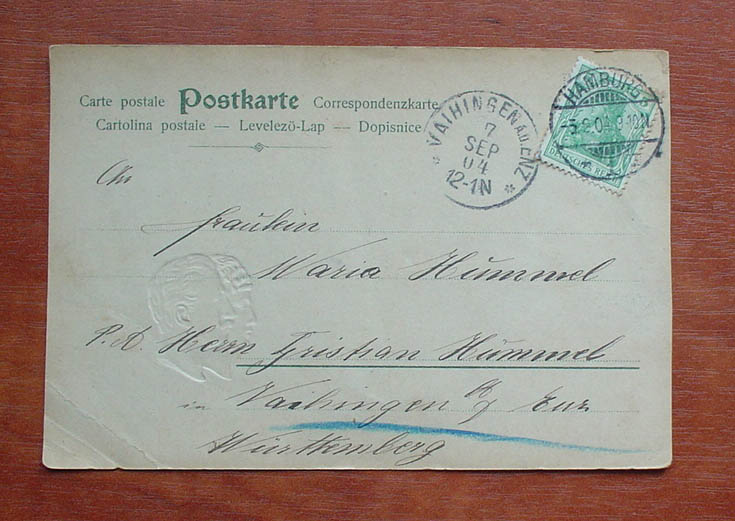 Carte postale Postkarte Correspondenzkarte
Cartolina postale — Levelezö-Lap — Dopisnice
VAIHINGEN A.D. ENZ
7
SEP
04
12-1N
HAMBURG
DEUTSCHES REICH
An
fräulein
Maria Hummel
P. A. Herrn Cristian Hümmel
in Vaihingen a/d Enz
Württemberg